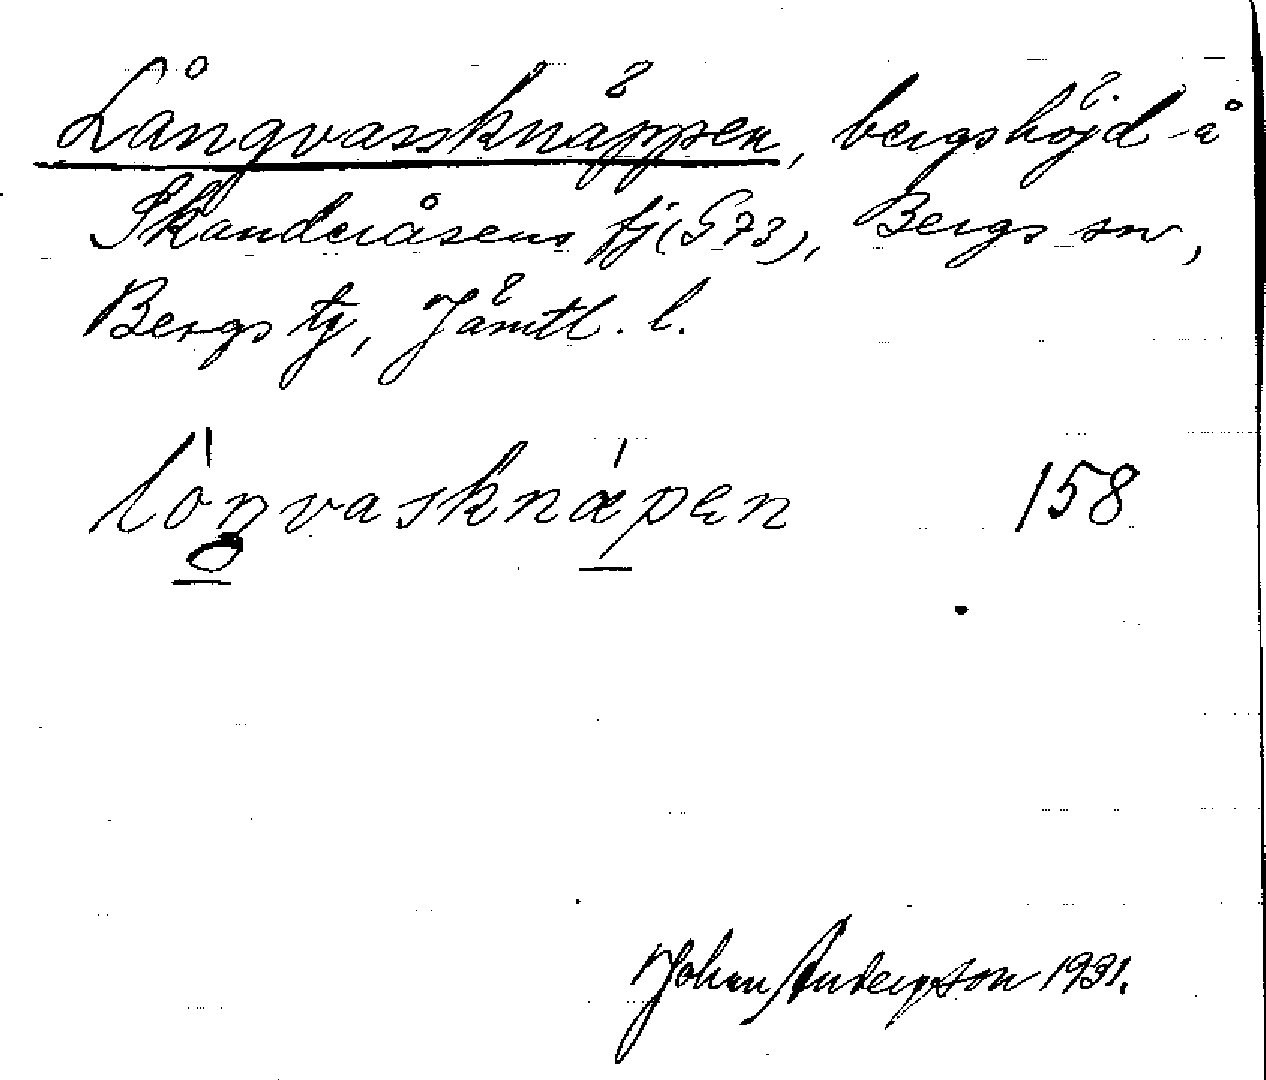 Långvassknäppen, bergshöjd å
Skanderåsens fj (G73), Bergs sn,
Bergs tg, Jämtl. l.
lóŋvasknápen 158
Johan Anderson 1931.